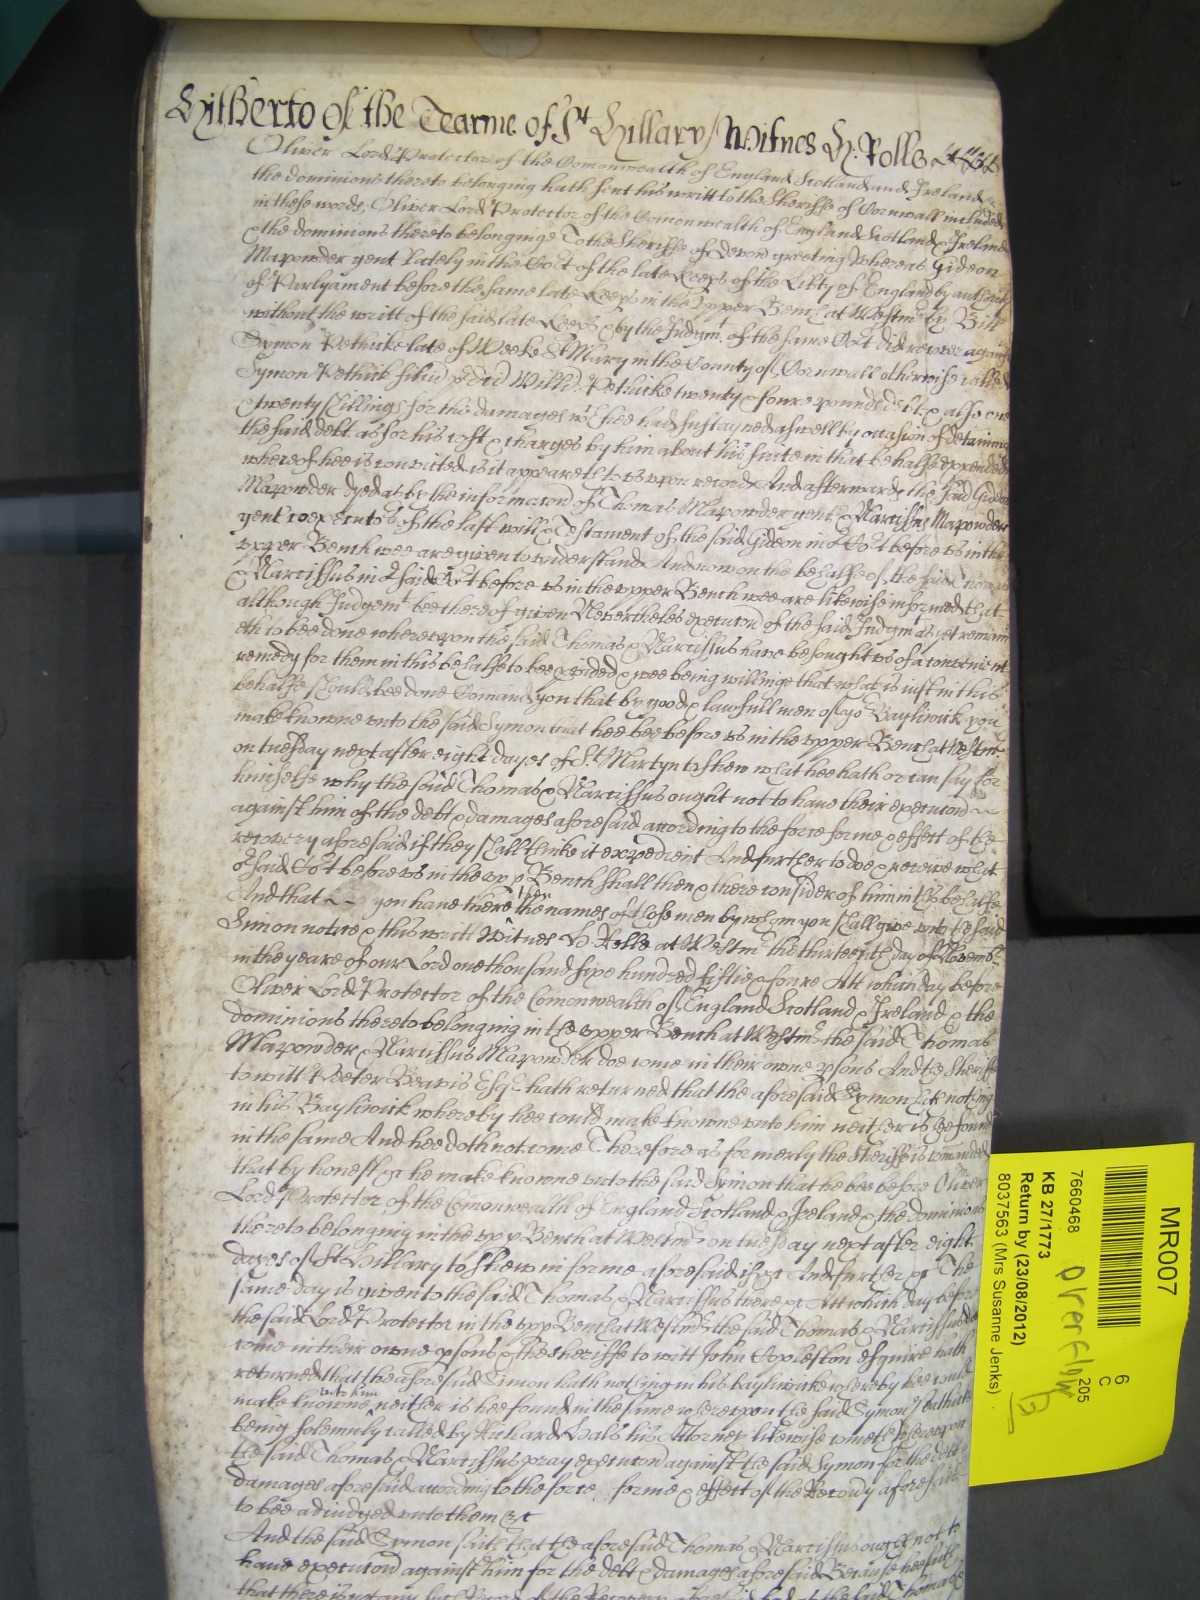 Hitherto of the Tearme of St Hillary / Witnes H: Rolle
Oliver Lord Protector of the Comonwealth of England Scotland and Ireland &
the dominions thereto belonging hath sent his writt to the Sheriffe of Cornwall included
in these words, Oliver Lord Protector of the Comonwealth of England Scotland & Ireland
& the dominions thereto belonginge To the Sheriffe of Devon greeting Whereas Gideon
Mapowder gent lately in the Cort of the late Keeps of the Libty of England by authority
of Parlyament before the same late Keeps in the Upper Bench at Westmr by Bill
without the writt of the said late Keeps & by the Judgmt of the same Cort did recover against
Symon Pethicke late of Weeke St Mary in the County of Cornwall otherwise called
Symon Pethick twenty & foure pounds debt & also one
& twenty shillings for the damages wch hee had sustayned aswell by occasion of detaining
the said debt as for his cost & charges by him about his suite in that behalfe expended
whereof hee is convicted as it appeareth to us upon record And afterwards the said Gideon
Mapowder dyed as by the informacon of Thomas Mapowder gent & Narcissus Mapowder
gent coexecutors of the last will & Testament of the said Gideon in or Cort before us in the
upper Bench wee are given to understand And now on the behalfe of the said Thomas
& Narcissus in or said Cort before us in the upper Bench wee are likewise informed that
although Judgemt bee thereof given Nevertheles execucon of the said Judgmt as yet remain
eth to bee done whereupon the said Thomas & Narcissus have besought us of a convenient
remedy for them in this behalfe to bee pvided & wee being willinge that what is just in this
behalfe should bee done Comand you that by good & lawfull men of yor Bayliwick you
make knowne unto the said Symon that hee bee before us in the upper Bench at Westmr
on tuesday next after eight dayes of St Martyn to shew what hee hath or can say for
himselfe why the said Thomas & Narcissus ought not to have their execucon
against him of the debt & damages aforesaid according to the force forme & effect of the
recovery aforesaid if they shall thinke it expedient And further to doe & receive what
or said Cort before us in the upp Bench shall then & there consider of him in this behalfe
And that ~ ~ you have there then the names of those men by whom you shall give unto the said
Simon notice & this writt Witnes H Rolle at Westmr the thirteenth day of Novembr
in the yeare of our Lord one thousand sixe hundred fiftie & foure Att which day before
Oliver Lord Protector of the Comonwealth of England Scotland & Ireland & the
dominions thereto belonging in the upper Bench at Westmr the said Thomas
Mapowder & Narcissus Mapowder doe come in their owne psons And the Sheriffe
to witt Peeter Beavis Esqr hath returned that the aforesaid Symon hath nothing
in his Bayliwick whereby hee could make knowne unto him neither is he found
in the same And hee doth not come Therefore as formerly the Sheriffe is comanded
that by honest &c he make knowne unto the said Simon that he bee before Oliver
Lord Protector of the Comonwealth of England Scotland & Ireland & the dominions
thereto belonging in the upp Bench at Westmr on tuesday next after eight
dayes of St Hillary to shew in forme aforesaid if &c And further &c The
same day is given to the said Thomas & Narcissus there &c Att which day before
the said Lord Protector in the upp Bench at Westmr the said Thomas & Narcissus doe
come in their owne psons & the sheriffe to witt John Copleston esquire hath
returned that the aforesaid Simon hath nothing in his bayliwicke whereby hee could
make knowne unto him neither is hee found in the same whereupon the said Symon Pethicke
being solemnly called by Richard Hals his Attorney likewise cometh Whereupon
the said Thomas & Narcissus pray execucon against the said Symon for the debt &
damages aforesaid according to the force forme & effect of the Recovy aforesaid
to bee adiudged unto them &c
And the said Symon saith that the aforesaid Thomas & Narcissus ought not to
have execucon against him for the debt & damages aforesaid Because hee saith
that there is not any such Record of the Recovery aforesaid had at the said Thomas
MR007
6
C
205
7660468
overflow
KB 27/1773
Return by (23/08/2012)
8037563 (Mrs Susanne Jenks)